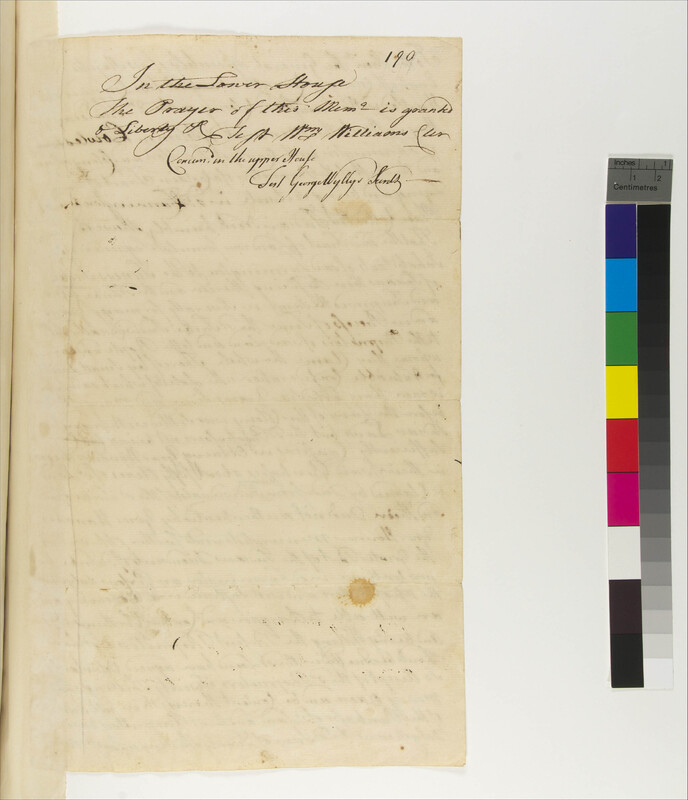 190
In the Lower House
The Prayer of this Memo is granted
& Liberty &c Test Wm Williams Cler
Concurd in the upper House
Test George Wyllys Secrety
inches 1
1 2
Centimetres